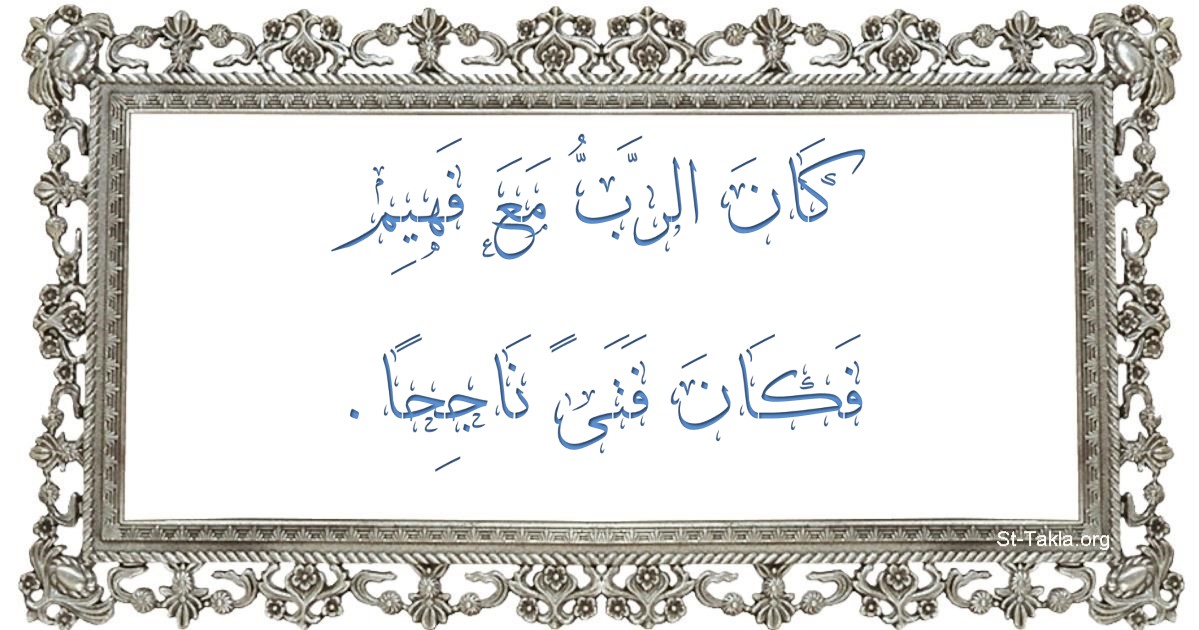 كَانَ الرَّبُّ مَعَ فَهِيمٍ
فَكَانَ فَتَىً نَاجِحًا .
St-Takla.org